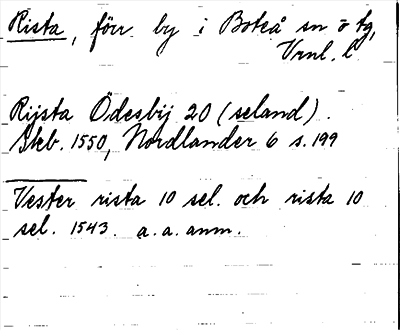 Rista, förr by i Boteå sn ö tg,
Vrnl. l
Rijsta Ödesbij 20 (seland).
Skb. 1550, Nordlander 6 s. 199
Vester rista 10 sel. och rista 10
sel. 1543. a. a. anm.